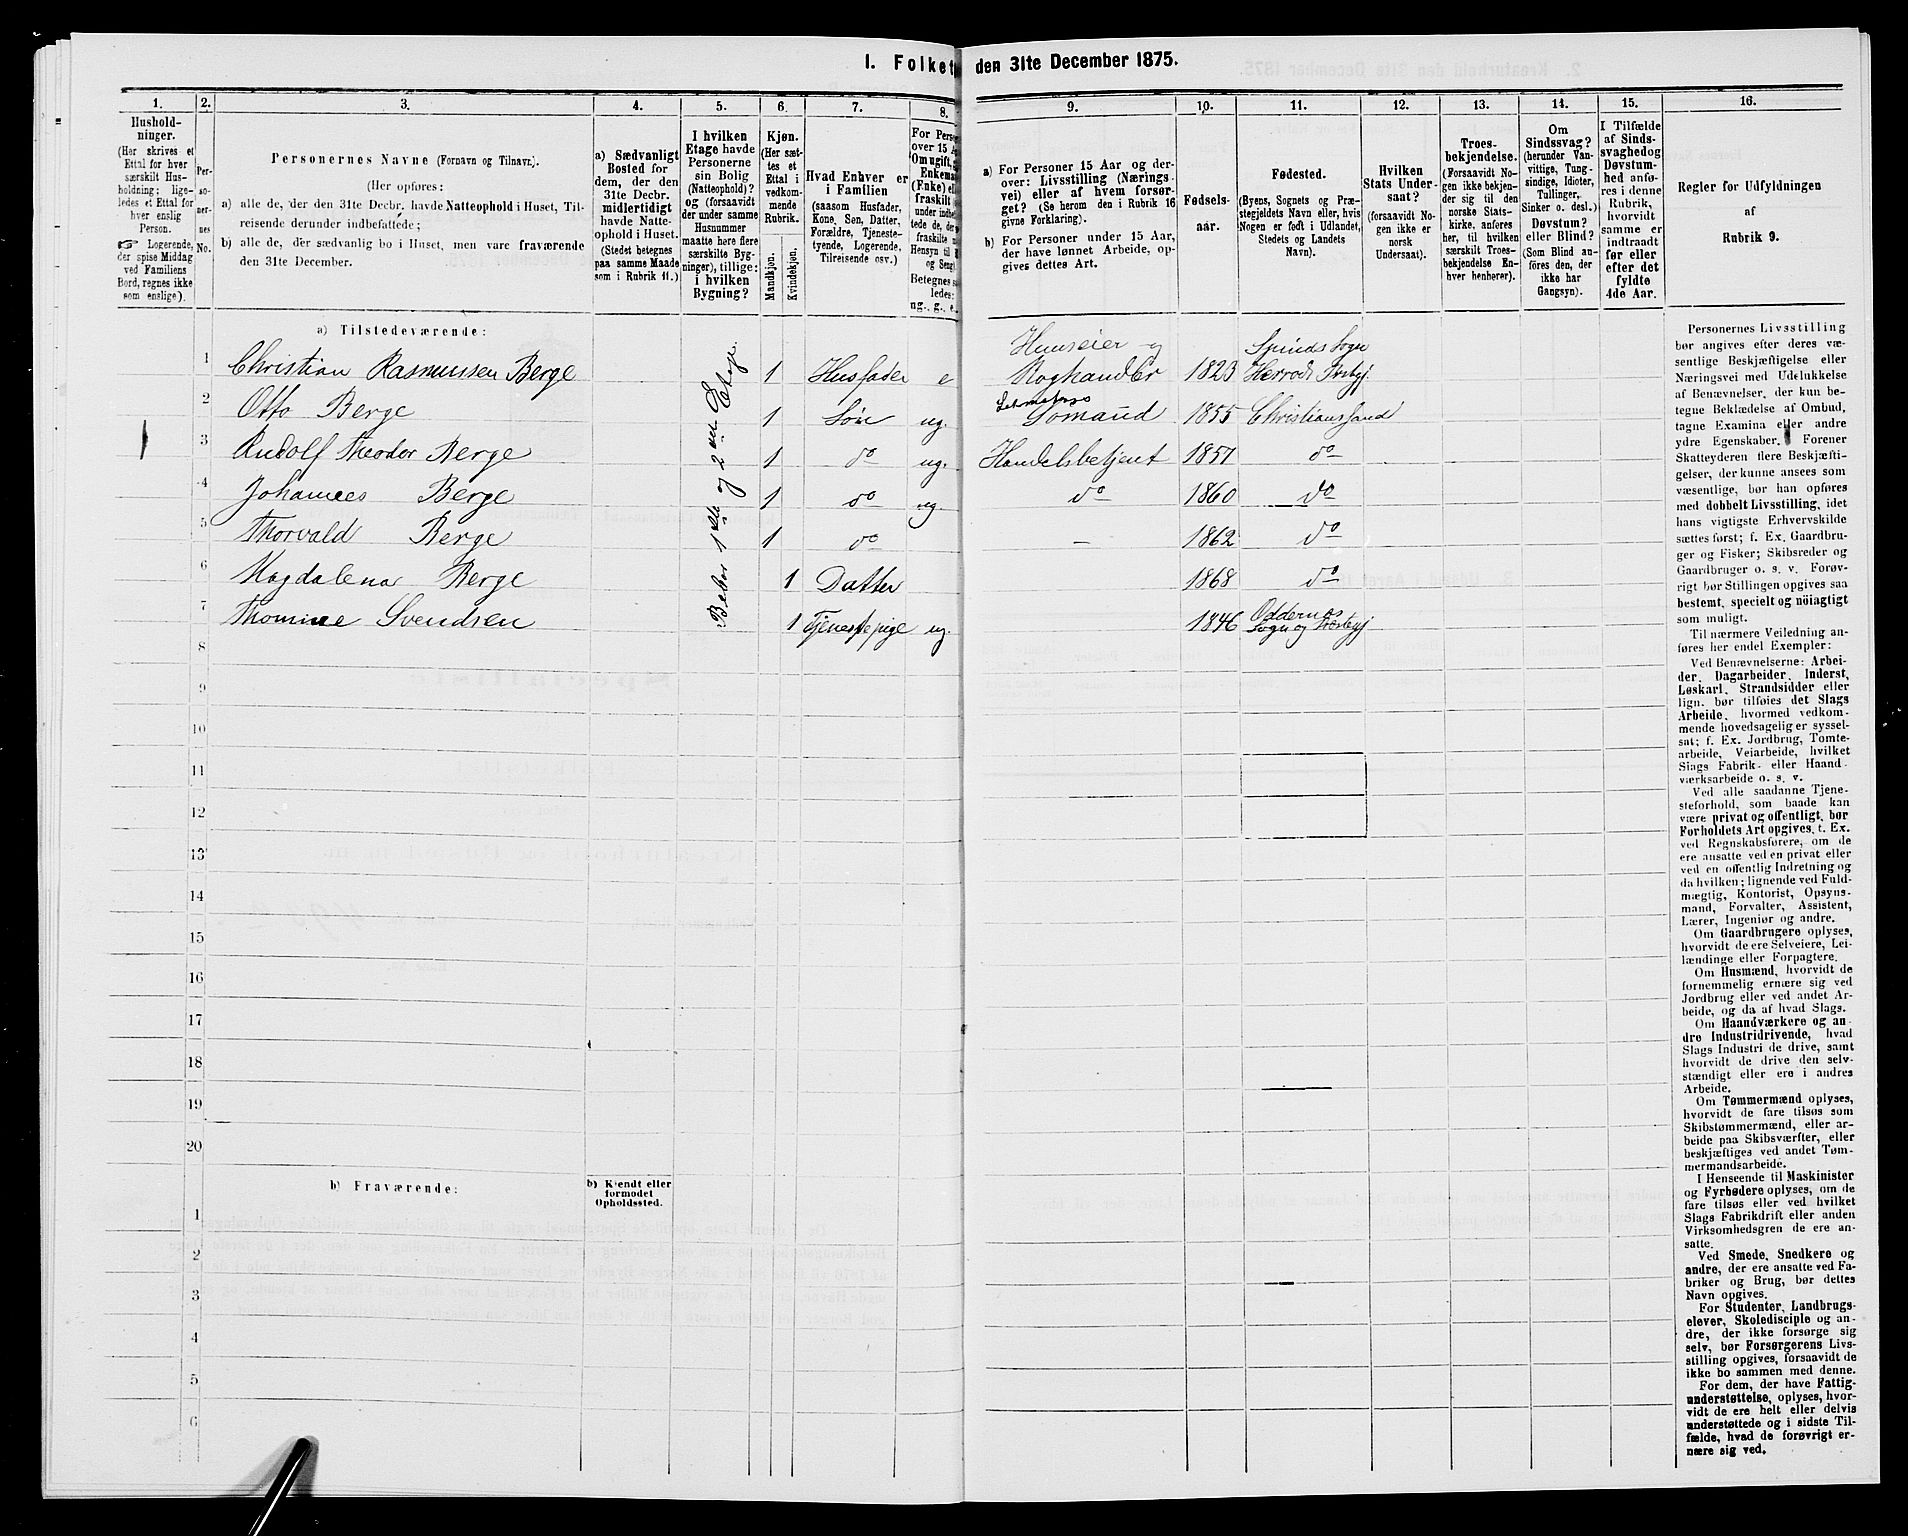 1. Folket
den 31te December 1875.
1.
2.
3.
4.
5.
6.
7.
8.
9.
10.
11.
12.
13.
14.
15.
16.
Hushold-
ninger.
(Her skrives et
Ettal for hver
særskilt Hus-
holdning; lige-
ledes et Ettal for
hver enslig
Person.
☞ Logerende,
der spise Middag
ved Familiens
Bord, regnes ikke
som enslige).
Per-
so-
ner-
nes
No.
Personernes Navne (Fornavn og Tilnavn).
(Her opføres:
a) alle de, der den 31te Decbr. havde Natteophold i Huset, Til-
reisende derunder indbefattede;
b) alle de, der sædvanlig bo i Huset, men vare fraværende
den 31te December.
a) Sædvanligt
Bosted for
dem, der den
31te Decbr.
midlertidigt
havde Natte-
ophold i Huset.
(Stedet betegnes
paa samme Maade
som i Rubrik 11.)
I hvilken
Etage havde
Personerne
sin Bolig
(Natteophold)?
og (forsaavidt
der under samme
Husnummer
maatte høre flere
særskilte Byg-
ninger), tillige:
i hvilken
Bygning?
Kjøn.
(Her sæt-
tes et
Ettal i
vedkom-
mende
Rubrik.
Mandkjøn.
Kvindekjøn.
Hvad Enhver er
i Familien
(saasom Husfader,
Kone, Søn, Datter,
Forældre, Tjeneste-
tyende, Logerende,
Tilreisende osv.)
For Perso
over 15 A
Om ugift,
Enkema
(Enke) el
fraskilt
under indbe
tede de, de
fraskilte
Hensyn til
og Seng
Betegnes s
ledes:
ug., g., e.
a) For Personer 15 Aar og der-
over: Livsstilling (Nærings-
vei) eller af hvem forsør-
get? (Se herom den i Rubrik 16
givne Forklaring).
b) For Personer under 15 Aar,
der have lønnet Arbeide, op-
gives dettes Art.
Fødsels-
aar.
Fødested.
(Byens, Sognets og Præ-
stegjeldets Navn eller, hvis
Nogen er født i Udlandet,
Stedets og Landets
Navn).
Hvilken
Stats Under-
saat?
(forsaavidt No-
gen ikke er
norsk
Undersaat).
Troes-
bekjendelse.
(Forsaavidt No-
gen ikke bekjen-
der sig til den
norske Stats-
kirke, anføres
her, til hvilken
særskilt Troes-
bekjendelse En-
hver henhører).
Om
Sindssvag?
(herunder Van-
vittige, Tung-
sindige, Idioter,
Tullinger,
Sinker o. desl.)
Døvstum?
eller Blind?
(Som Blind an-
føres den, der
ikke har
Gangsyn).
I Tilfælde
af Sinds-
svaghed og
Døvstum-
hed anfø-
res i denne
Rubrik,
hvorvidt
samme er
indtraadt
før eller
efter det
fyldte
4de Aar.
Regler for Udfyldningen
af
Rubrik 9.
a) Tilstedeværende:
Bebor 1ste og 2den Etage.
Huuseier og
Spinds Sogn
1 Christian Rasmussen Berge 1 Husfader e Roghandler 1823 Herrods Prstgj.
2 Otto Berge 1 Søn ug. Sømand 1855 Christianssand
3 Rudolf Theodor Berge 1 do ug. Handelsbetjent 1857 do
4 Johannes Berge 1 do ug. do 1860 do
5 Thorvald Berge 1 do - 1862 do
6 Magdalena Berge 1 Datter 1868 do
7 Thomine Svendsen 1 Tjenestepige ug. 1846 Oddernæs
Sogn og Præstegj
8
9
10
11
12
13
14
15
16
17
18
19
20
b) Fraværende:
b) Kjendt eller
formodet
Opholdssted.
1
2
3
4
5
6
Personernes Livsstilling
bør angives efter deres væ-
sentlige Beskjæftigelse eller
Næringsvei med Udelukkelse
af Benævnelser, der kun be-
tegne Beklædelse af Ombud,
tagne Examina eller andre
ydre Egenskaber. Forener
Skatteyderen flere Beskjæfti-
gelser, der kunne ansees som
væsentlige, bør han opføres
med dobbelt Livsstilling, idet
hans vigtigste Erhvervskilde
sættes først; f. Ex. Gaardbru-
ger og Fisker; Skibsreder og
Gaardbruger o. s. v. Forøv-
rigt bør Stillingen opgives saa
bestemt, specielt og nöiagtigt
som muligt.
Til nærmere Veiledning an-
føres her endel Exempler:
Ved Benævnelserne: Arbei-
der, Dagarbeider, Inderst,
Løskarl, Strandsidder eller
lign. bør tilføies det Slags
Arbeide, hvormed vedkom-
mende hovedsagelig er syssel-
sat; f. Ex. Jordbrug, Tomte-
arbeide, Veiarbeide, hvilket
Slags Fabrik- eller Haand-
værksarbeide o. s. v.
Ved alle saadanne Tjene-
steforhold, som baade kan
være privat og offentligt, bør
Forholdets Art opgives, t. Ex.
ved Regnskabsførere, om de
ere ansatte ved en privat eller
ved en offentlig Indretning og
da hvilken; lignende ved Fuld-
mægtig, Kontorist, Opsyns-
mand, Forvalter, Assistent,
Lærer, Ingeniør og andre.
Om Gaardbrugere oplyses,
hvorvidt de ere Selveiere, Lei-
lændinge eller Forpagtere.
Om Husmænd, hvorvidt de
fornemmelig ernære sig ved
Jordbrug eller ved andet Ar-
beide, og da af hvad Slags.
Om Haandværkere og an-
dre Industridrivende, hvad
Slags Industri de drive, samt
hvorvidt de drive den selv-
stændigt eller ere i andres
Arbeide.
Om Tømmermænd oplyses,
hvorvidt de fare tilsøs som
Skibstømmermænd, eller ar-
beide paa Skibsværfter, eller
beskjæftiges ved andet Tøm-
mermandsarbeide.
I Henseende til Maskinister
og Fyrbødere oplyses, om de
fare tilsøs eller ved hvilket
Slags Fabrikdrift eller anden
Virksomhedsgren de ere an-
satte.
Ved Smede, Snedkere og
andre, der ere ansatte ved Fa-
briker og Brug, bør dettes
Navn opgives.
For Studenter, Landbrugs-
elever, Skoledisciple og an-
dre, der ikke forsørge sig
selv, bør Forsørgerens Livs-
stilling opgives, forsaavidt de
ikke bo sammen med denne.
For dem, der have Fattig-
understøttelse, oplyses, hvor-
vidt de ere helt eller delvis
understøttede og i sidste Til-
fælde, hvad de forøvrigt er-
nære sig ved.